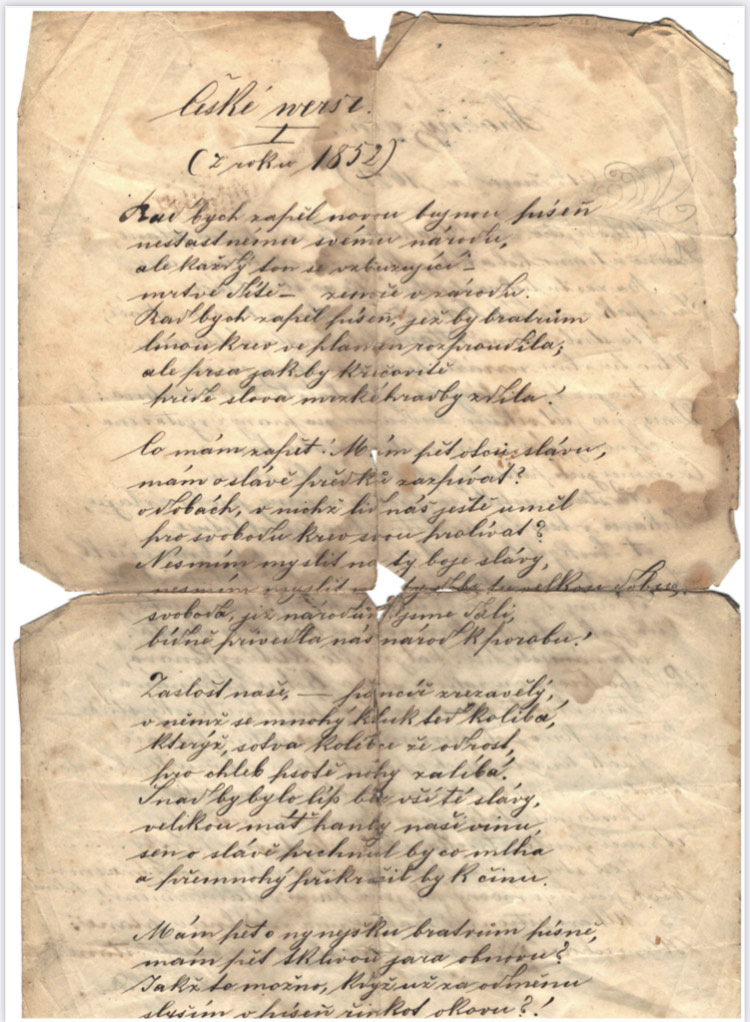 České verše.
I
(z roku 1852)
Rád bych zapěl novou bujnou píseň
nešťastnému svému národu,
ale každý ton se vzbuzující –
mrtvé dítě – zemře v zárodku.
Rád bych zapěl píseň, jež by bratrům
línou krev ve plamen rozproudila;
ale prsa jak by křečovitě
přede slova mrzké hradby zdila!
Co mám zapět? Mám pět otců slávu,
mám o slávě předků zazpívat?
o dobách, v nichž lid náš ještě uměl
pro svobodu krev svou prolívat?
Nesmím myslit na ty boje slávy,
nesmím myslit
svoboda, již národům jsme dali,
bídně přivedla náš národ k porobu!
Zašlost naše, — pancíř zrezavělý,
v němž se mnohý kluk teď kolíbá,
kterýž, sotva kolíbce že odrost,
pro chleb psotě nohy zalíbá.
Snad by bylo líp bez vší té slávy,
velikou máť hanby naší vinu,
sen o slávě prchnul by co mlha
a přemnohý přikročil by k činu.
Mám pět o nynějšku bratrům písně,
mám pět tklivou jara obnovu?
Jakž to možno, když už za odměnu
slyším v píseň řinkot okovu?!